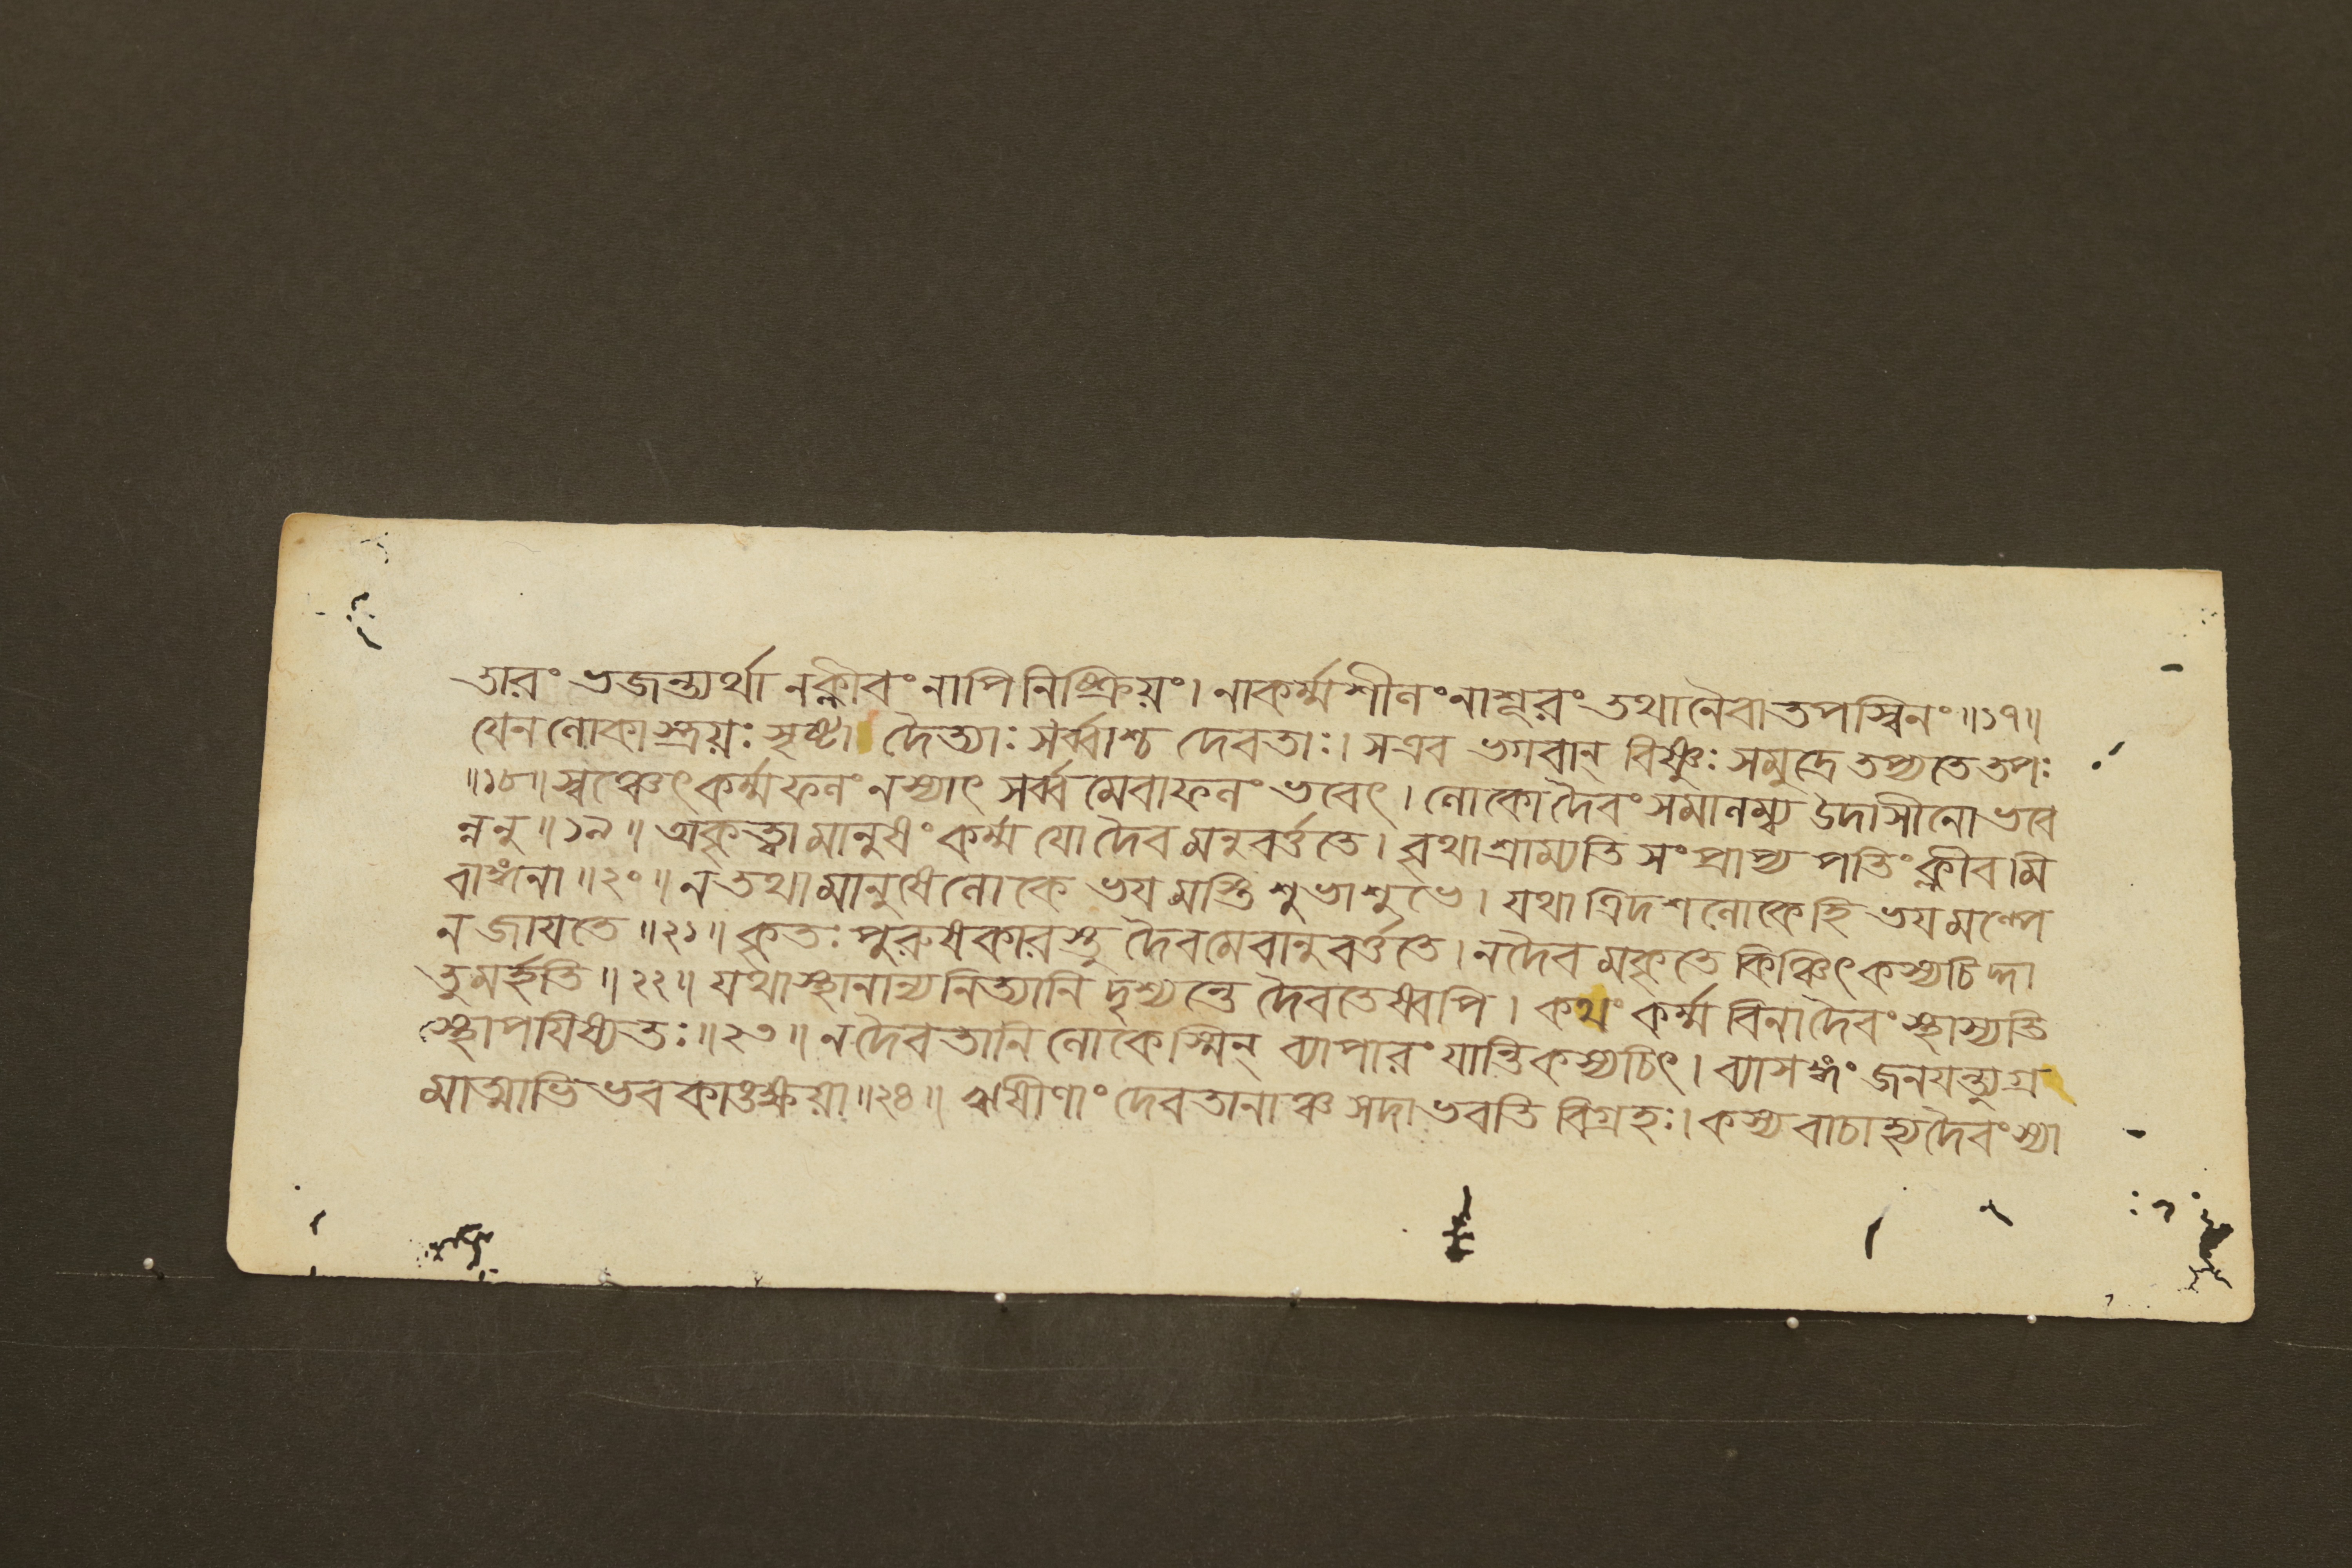 তারং ভজন্ত্যর্থা নক্লীবং নাপি নিষ্ক্রিয়ং। নাকর্ম্মশীলং নাশূরং তথা নৈবাতপস্বিনং॥১৭॥
যেন লোকাস্ত্রয়ঃ সৃষ্টা দৈত্যাঃ সর্ব্বাশ্চ দেবতাঃ। স এব ভগবান্ বিষ্ণুঃ সমুদ্রে তপ্যতে তপঃ
॥১৮॥ স্বঞ্চেৎ কর্ম্মফলং ন স্যাৎ সর্ব্বমেবাফলং ভবেৎ। লোকো দৈবং সমালম্ব্য উদাসীনো ভবে
ন্ননু॥১৯॥ অকৃত্বা মানুষং কর্ম্ম যো দৈবমনুবর্ত্ততে। বৃথা শ্রাম্যতি সংপ্রাপ্য পতিং ক্লীবমি
বাঙ্গনা॥২০॥ ন তথা মানুষে লোকে ভয়মস্তি শুভাশুভে। যথা ত্রিদশলোকে হি ভয়মল্পে
ন জায়তে॥২১॥ কৃতঃ পুরুষকারস্তু দৈবমেবানুবর্ত্ততে। ন দৈবমকৃতে কিঞ্চিৎ কস্যচিদ্দা
তুমর্হতি॥২২॥ যথা স্থানান্যনিত্যানি দৃশ্যন্তে দৈবতেষ্বপি। কথং কর্ম্ম বিনা দৈবং স্থাস্যতি
স্থাপয়িষ্যতঃ॥২৩॥ ন দৈবতানি লোকেস্মিন্ ব্যাপারং যান্তি কস্যচিৎ। ব্যাসঙ্গং জনয়ন্ত্যুগ্র
মাত্মাভিভবকাঙ্ক্ষয়া॥২৪॥ ঋষীণাং দেবতানাঞ্চ সদা ভবতি বিগ্রহঃ। কস্য বাচা হ্যদৈবং স্যা